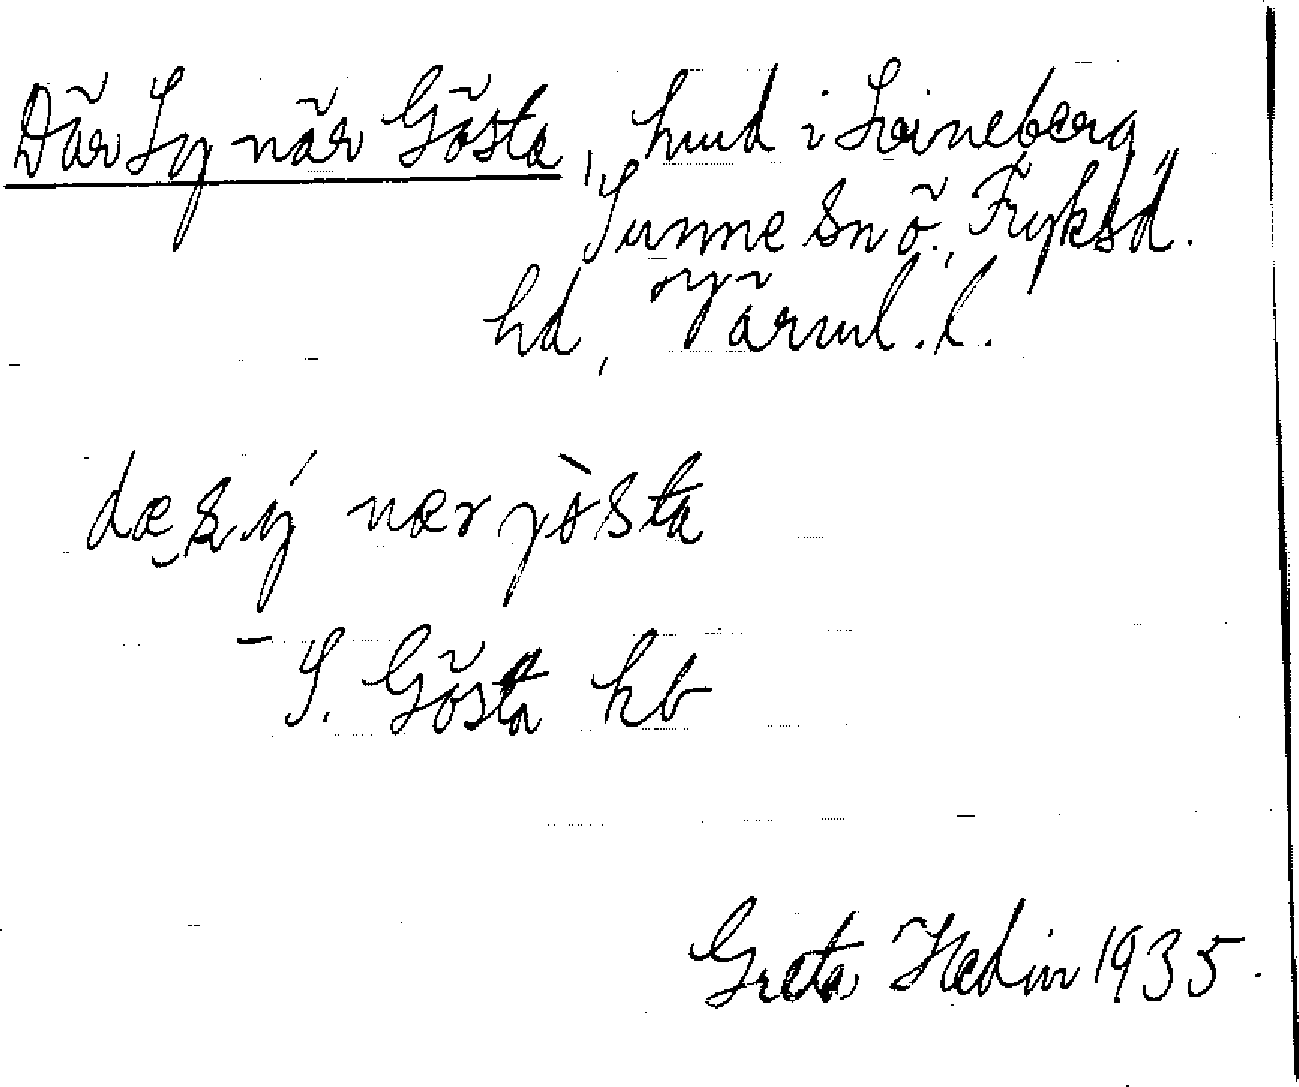 Där Sy när Gösta, hmd i Leineberg,
Sunne sn ö., Fryksd.
hd, Värml. l.
dæ s̬ý nær jòsta
S. Gösta hb
Greta Hedin 1935.